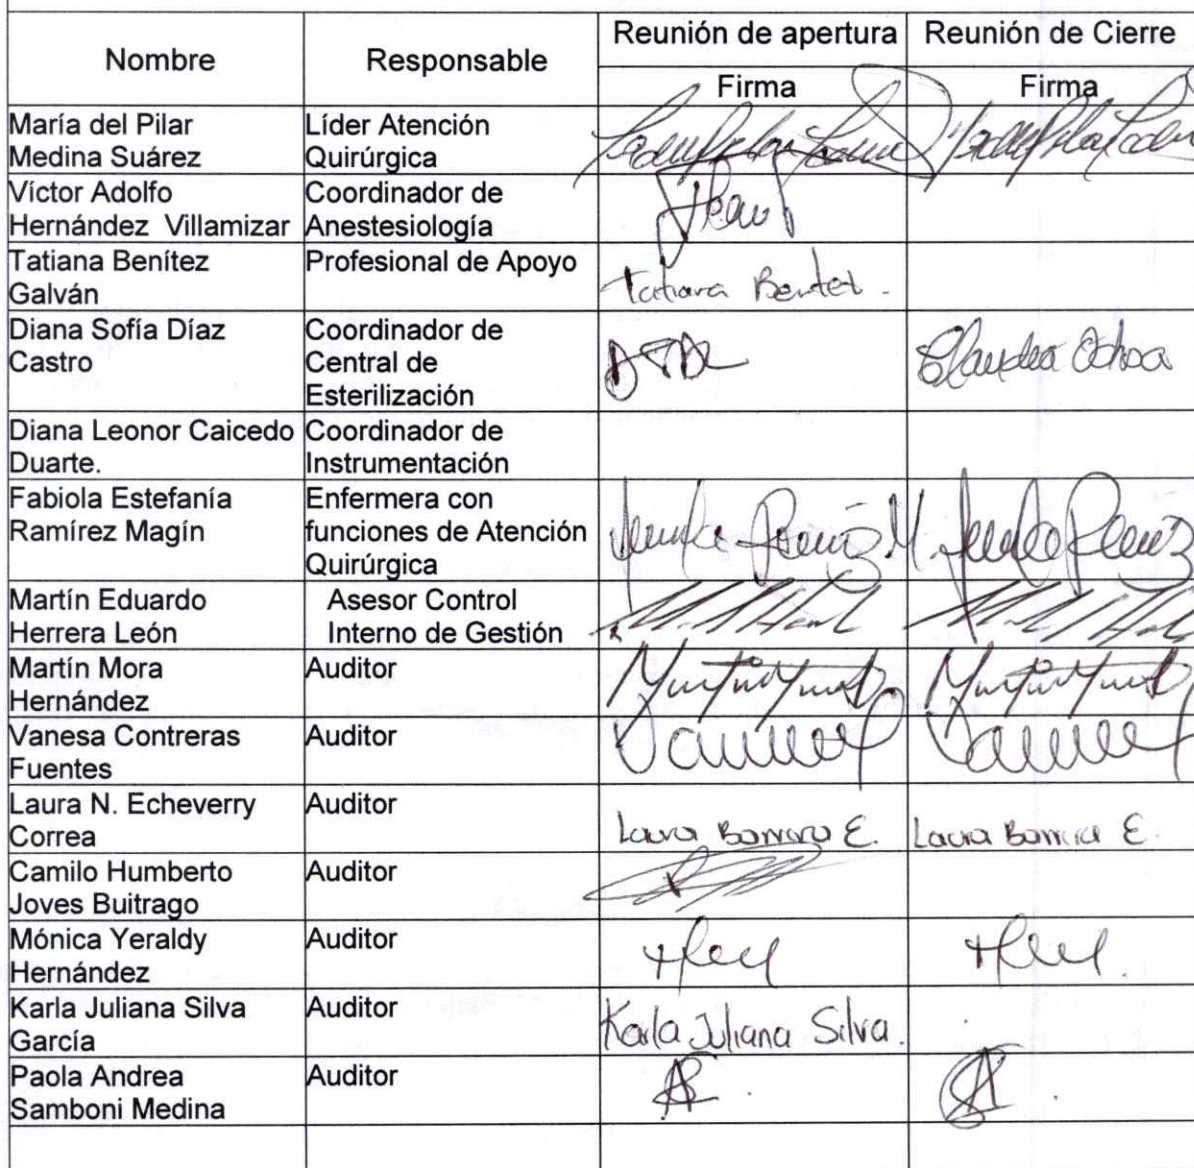 Nombre
Responsable
Reunión de apertura
Reunión de Cierre
Firma
Firma
María del Pilar
Medina Suárez
Líder Atención
Quirúrgica
Víctor Adolfo
Hernández Villamizar
Coordinador de
Anestesiología
Tatiana Benítez
Galván
Profesional de Apoyo
Tatiana
Diana Sofía Díaz
Castro
Coordinador de
Central de
Esterilización
Claudia Ochoa
Diana Leonor Caicedo
Duarte.
Coordinador de
Instrumentación
Fabiola Estefanía
Ramírez Magín
Enfermera con
funciones de Atención
Quirúrgica
Martín Eduardo
Herrera León
Asesor Control
Interno de Gestión
Martín Mora
Hernández
Auditor
Vanesa Contreras
Fuentes
Auditor
Laura N. Echeverry
Correa
Auditor
Laura E.
Laura E.
Camilo Humberto
Joves Buitrago
Auditor
Mónica Yeraldy
Hernández
Auditor
Karla Juliana Silva
García
Auditor
Karla Juliana Silva.
Paola Andrea
Samboni Medina
Auditor